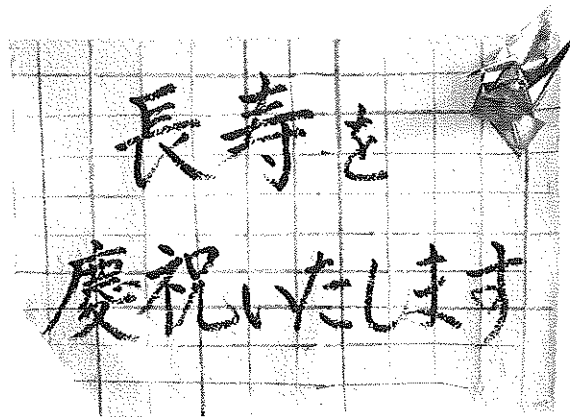 長寿を
慶祝いたします